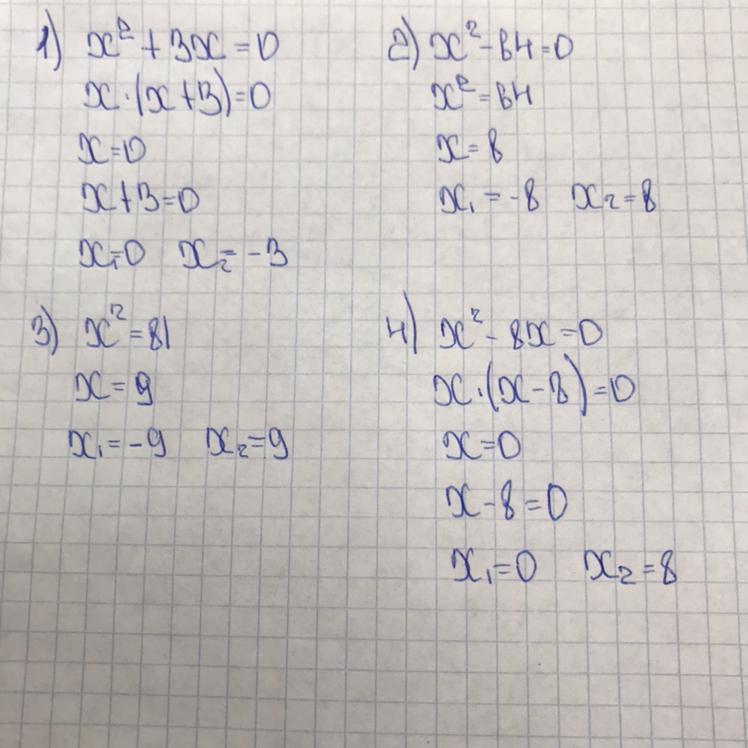 1) x² + 3x = 0
x·(x+3)=0
x=0
x+3=0
x₁=0 x₂=-3
2) x²-64=0
x²=64
x=8
x₁=-8 x₂=8
3) x²=81
x=9
x₁=-9 x₂=9
4) x²-8x=0
x·(x-8)=0
x=0
x-8=0
x₁=0 x₂=8